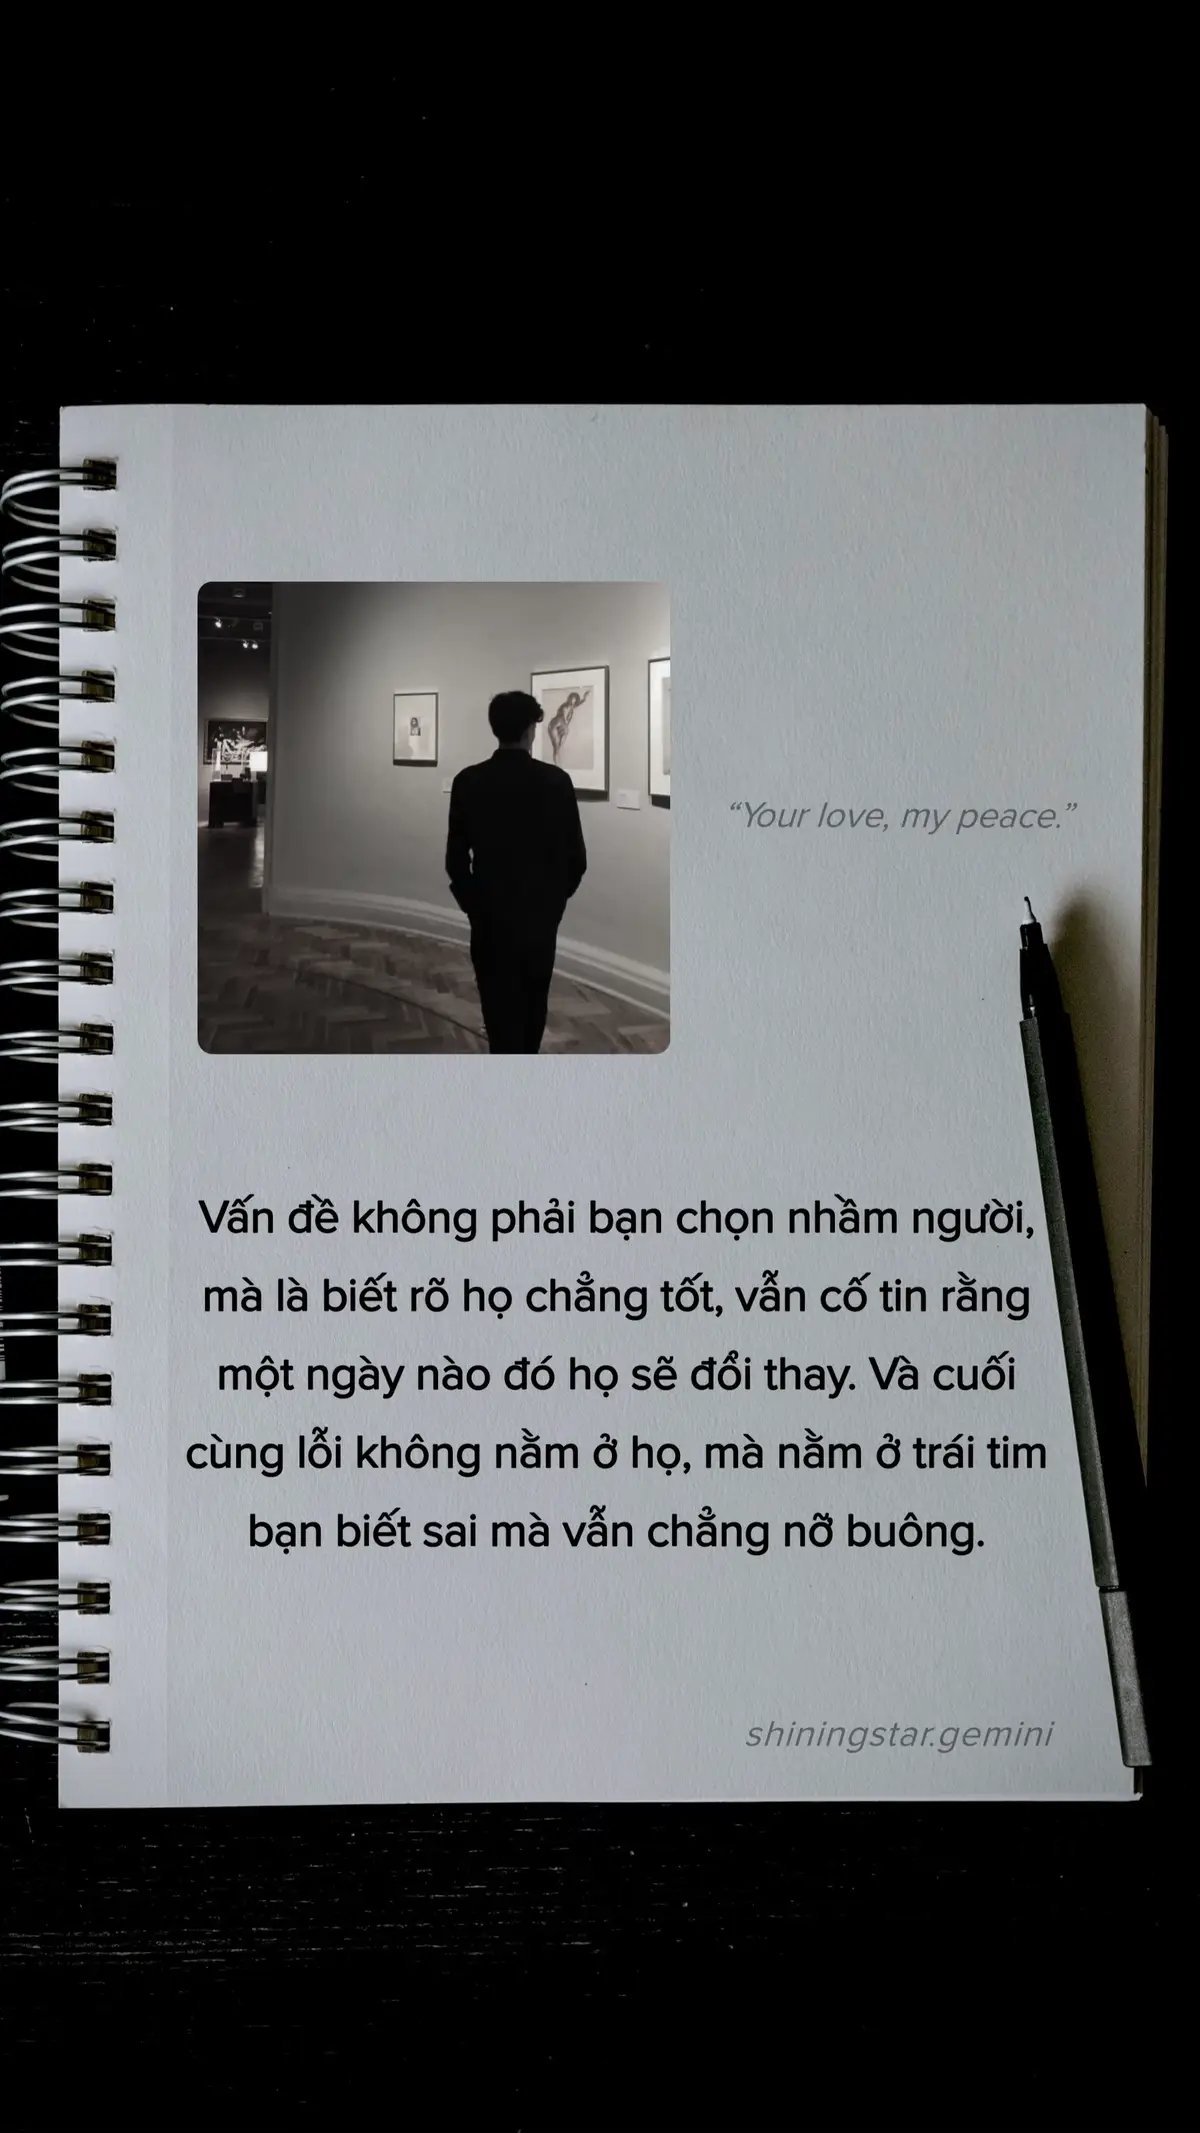 “Your love, my peace.”
Vấn đề không phải bạn chọn nhầm người,
mà là biết rõ họ chẳng tốt, vẫn cố tin rằng
một ngày nào đó họ sẽ đổi thay. Và cuối
cùng lỗi không nằm ở họ, mà nằm ở trái tim
bạn biết sai mà vẫn chẳng nỡ buông.
shiningstar.gemini